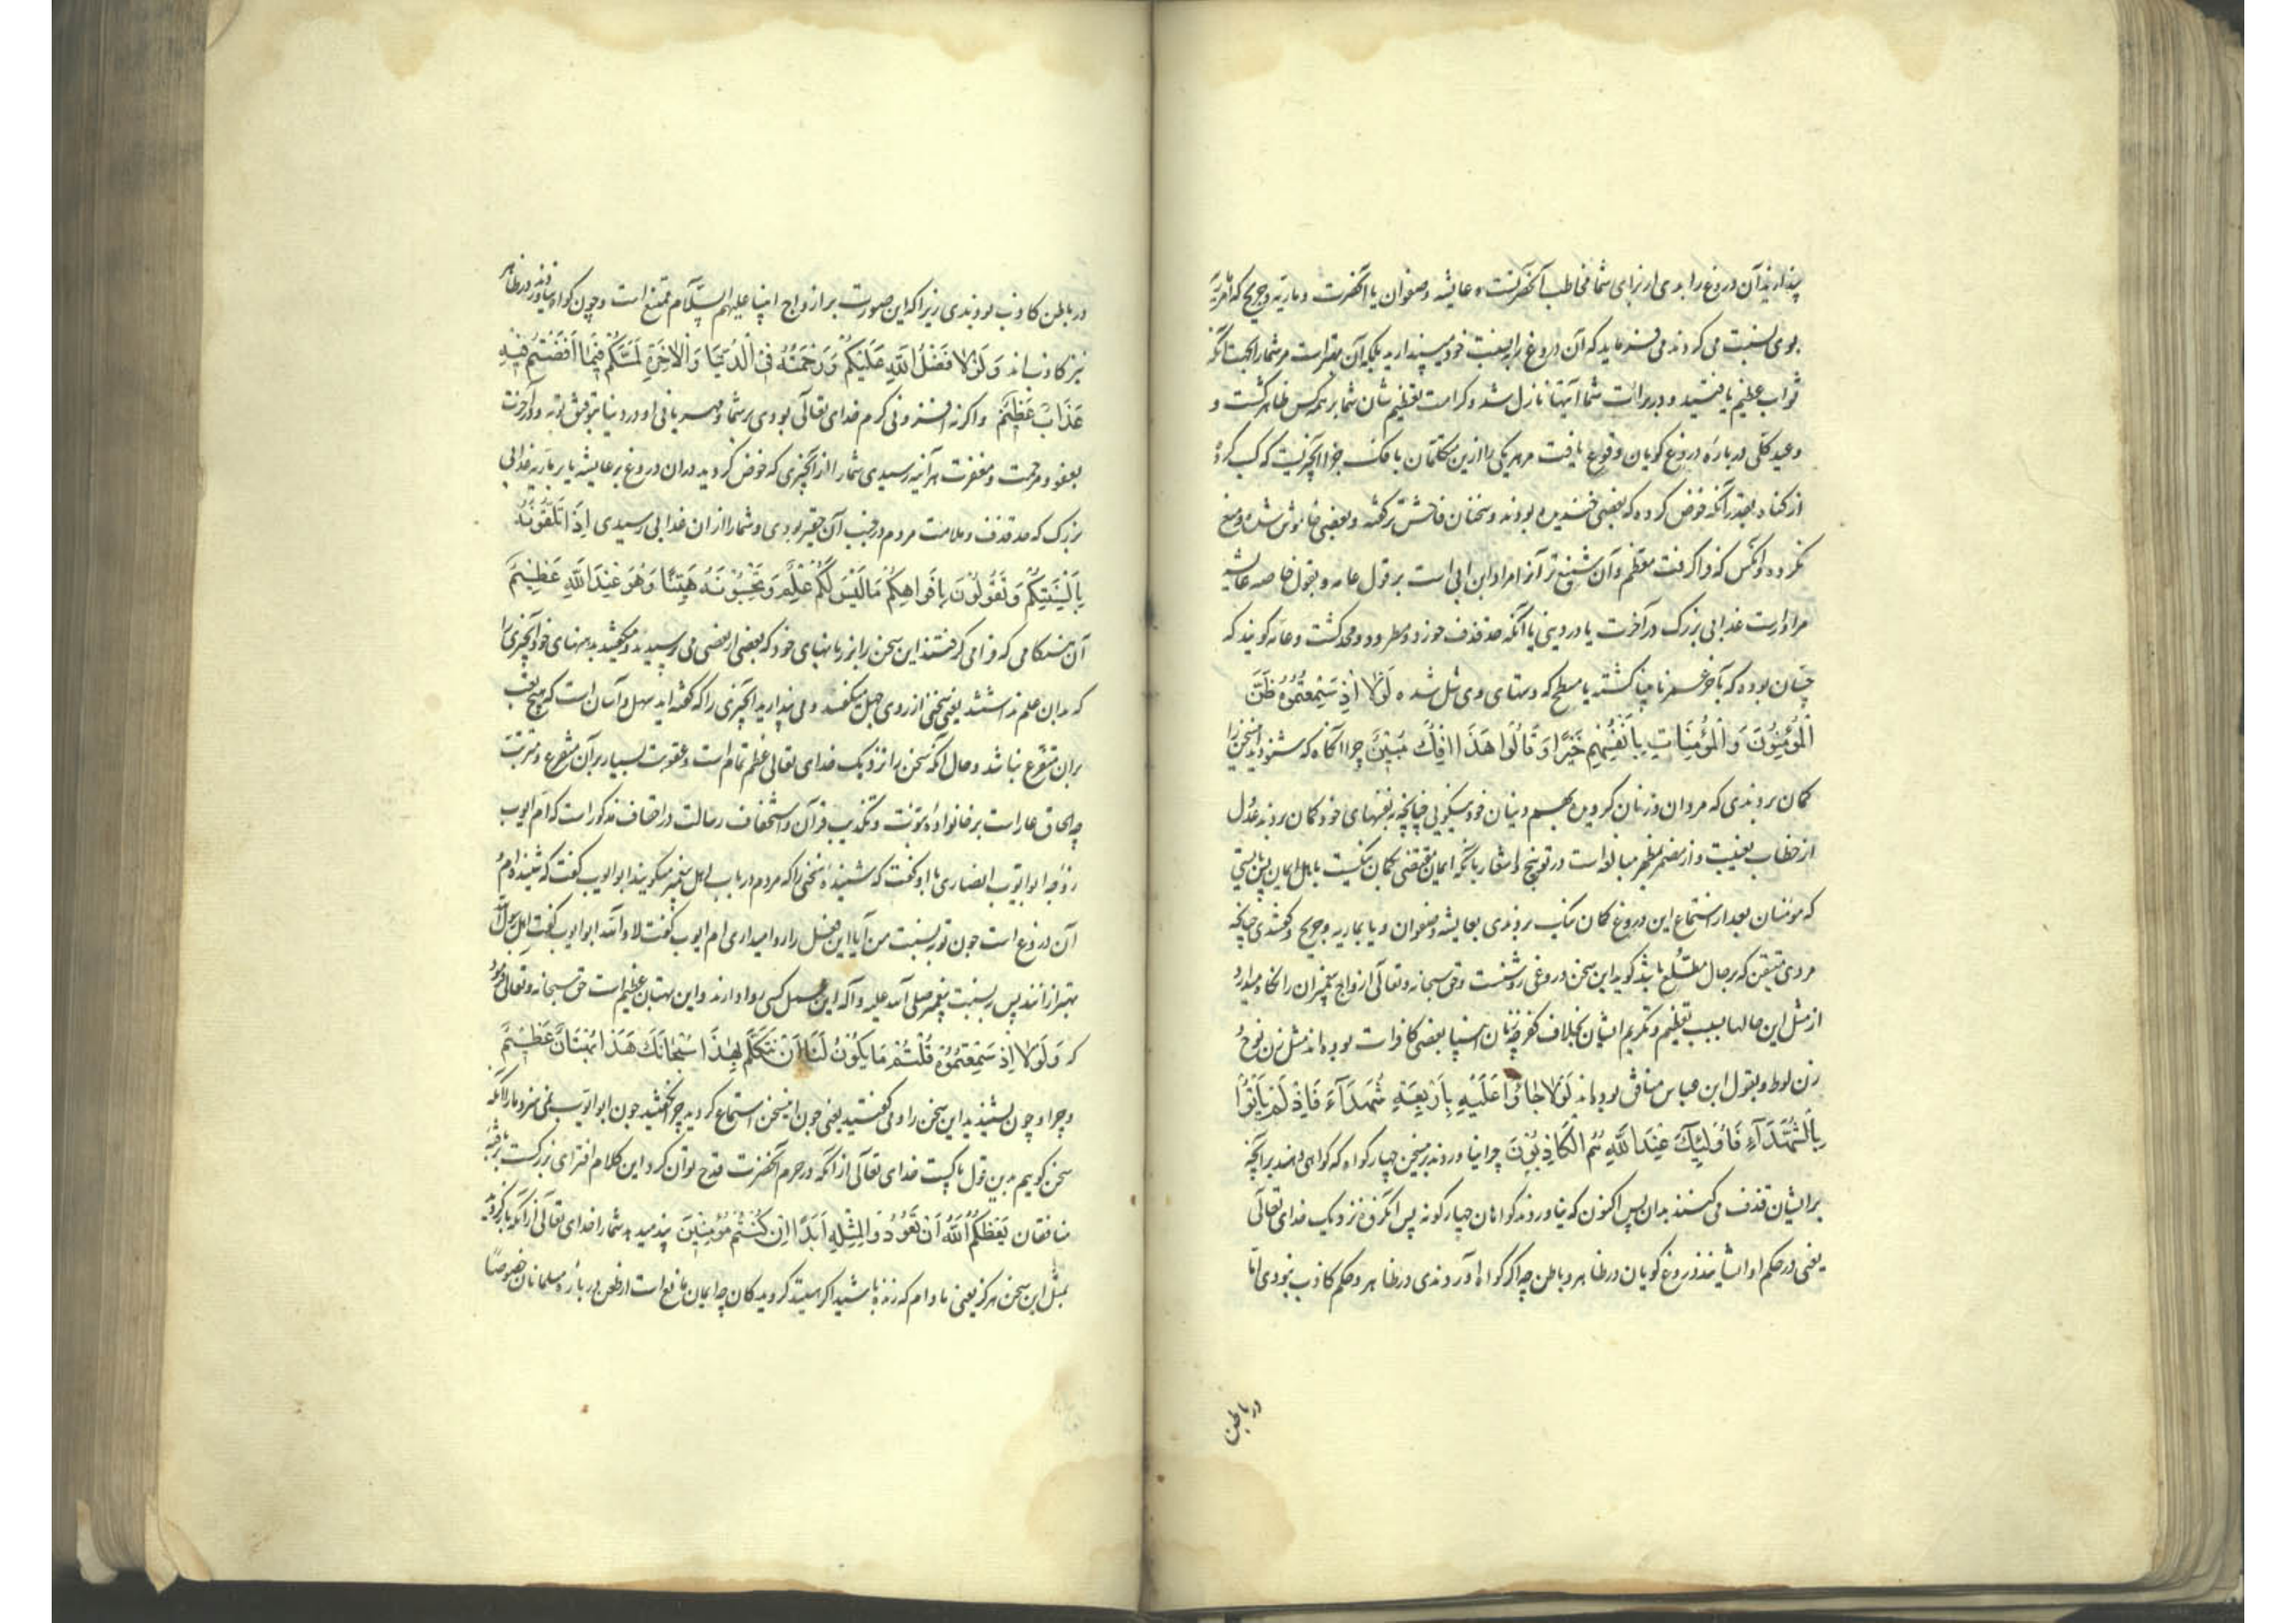 پندارید آن دروغ را بدی از برای شما مخاطب آنحضرتست و عایشه و صفوان یا آنحضرت و ماریه و جریح که ماریه
بوی نسبت می کردند می فرماید که آن دروغ را به نسبت خود مپندارید بلکه آن بهتر است مر شما را بجهت آنکه
ثواب عظیم یافتید و در برائت شما آیتها نازل شد و کرامت تعظیم شان شما بر همه کس ظاهر گشت و
وعید کلی درباره دروغ گویان وقوع یافت مر هر یکی را ازین متکلمان بافک جزا آنچیزیست که کسب کرد
از گناه بقدر آنکه خوض کرده که بعضی خندیده بودند و سخنان فاحش تر گفته و بعضی خاموش شده و منع
نکرده و آنکس که فرا گرفت معظم و آن شنیع تر آنرا مراد ابن ابی است بر قول عامه و بقول خاصه عایشه
مر او راست عذابی بزرگ در آخرت یا در دینی یا آنکه حد قذف خورد و مطرود و محدود گشت و عامه گویند که
حسان بوده که بآخر عمر نابینا گشته یا مسطح که دستهای وی شل شده لَوْلَا اِذْ سَمِعْتُمُوهُ ظَنَّ
الْمُؤْمِنُونَ وَ الْمُؤْمِنَاتِ بِاَنْفُسِهِمْ خَيْرًا وَ قَالُوا هَذَا اِفْكٌ مُبِينٌ چرا آنگاه که شنودید این سخن را
گمان بردندی که مردان و زنان گرویده بهم دینان خود نیکویی چنانچه به نفسهای خود گمان بردند عدول
از خطاب بغیبت و از مضمر بمظهر مبالغه است در توبیخ و اشعار بآنکه ایمان مقتضی گمان نیکست باهل ایمان پس بایستی
که مومنان بعد از استماع این دروغ گمان نیک بردندی بعایشه و صفوان و یا بماریه و جریح و گفتندی چنانچه
مردی متیقن که بر حال مطلع باشد گوید این سخن دروغی روشنست و حق سبحانه و تعالی ازواج پیغمبران را نگاه میدارد
از مثل این حالها بسبب تعظیم و تکریم ایشان بخلاف کفر چه زنان انبیا بعضی کافرات بوده اند مثل زن نوح
زن لوط و بقول ابن عباس منافق بوده اند لَوْلَا جَاؤُا عَلَيْهِ بِاَرْبَعَةِ شُهَدَآءَ فَاِذْ لَمْ يَاْتُوا
بِالشُّهَدَآءِ فَاُولٰئِكَ عِنْدَ اللّٰهِ هُمُ الْكَاذِبُونَ چرا نیاوردند برین سخن چهار گواه که گواهی دهند بر آنچه
بر ایشان قذف می کنند بدان پس اکنون که نیاوردند گواهان چهارگونه پس آنگروه نزدیک خدای تعالی
یعنی در حکم او ایشانند دروغ گویان در ظاهر و باطن چه اگر گواه آوردندی در ظاهر و حکم کاذب نبودی اما
در باطن
در باطن کاذب بودندی زیرا که این صورت بر ازواج انبیا علیهم السّلام ممتنع است و چون گواه نیاوردند در ظاهر
نیز کاذبانند وَ لَوْلَا فَضْلُ اللّٰهِ عَلَيْكُمْ وَ رَحْمَتُهُ فِى الدُّنْيَا وَ الْاٰخِرَةِ لَمَسَّكُمْ فِيمَا اَفَضْتُمْ فِيهِ
عَذَابٌ عَظِيمٌ و اگر نه افزونی کرم خدای تعالی بودی بر شما و مهربانی او در دنیا بتوفیق توبه و در آخرت
بعفو و مرحمت و مغفرت هر آینه رسیدی شما را از آنچیزی که خوض کردید در آن دروغ بر عایشه یا بر ماریه عذابی
بزرگ که حد قذف و ملامت مردم در جنب آن حقیر بودی و شما را از ان عذابی رسیدی اِذْ تَلَقَّوْنَهُ
بِاَلْسِنَتِكُمْ وَ تَقُولُونَ بِاَفْوَاهِكُمْ مَا لَيْسَ لَكُمْ عِلْمٌ وَ تَحْسَبُونَهُ هَيِّنًا وَ هُوَ عِنْدَ اللّٰهِ عَظِيمٌ
آن هنگامی که فرا می گرفتند این سخن را بزبانهای خود که بعضی از بعضی می پرسیدند و میگفتید بدهنهای خود آنچیزی را
که بدان علم نداشتند یعنی سخنی از روی جهل میگفتند و می پندارید آنچیزی را که گفته اید سهل و آسان است که هیچ تعب
بران متفرع نباشد و حال آنکه سخن را نزدیک خدای تعالی عظم تمام است و عقوبت بسیار بر آن متفرع و مترتب
چه الحاق عار است بر خانواده نبوّت و تکذیب قرآن و استخفاف رسالت در اقضاف مذکور است که ام ایوب
زوجه ابو ایوب انصاری با او گفت که شنیده سخنی را که مردم در باب اهل پیغمبر میگویند ابو ایوب گفت که شنیده ام و
آن دروغ است چون تو به نسبت من آیا این فعل را روا میداری ام ایوب گفت لا و اللّه ابو ایوب گفت اهل رسول اللّه
بهتر از انند پس به نسبت پیغمبر صلی اللّه علیه و آله این عمل کسی روا دارند و این بهتان عظیم است حق سبحانه و تعالی فرمود
که وَ لَوْلَا اِذْ سَمِعْتُمُوهُ قُلْتُمْ مَا يَكُونُ لَنَا اَنْ نَتَكَلَّمَ بِهٰذَا سُبْحَانَكَ هَذَا بُهْتَانٌ عَظِيمٌ
و چرا و چون بشنیدید این سخن را و می گفتید یعنی چون این سخن استماع کردید چرا نگفتید چون ابو ایوب نمی سزد ما را آنکه
سخن گوییم بدین قول پاکیست خدای تعالی از آنکه در حرم آنحضرت قدح توان کرد این کلام افترای بزرگست بر بافته
منافقان يَعِظُكُمُ اللّٰهُ اَنْ تَعُودُوا لِمِثْلِهِ اَبَدًا اِنْ كُنْتُمْ مُؤْمِنِينَ پند میدهد شما را خدای تعالی از آنکه باز گردید
بمثل این سخن هرگز یعنی مادام که زنده باشید اگر هستید گرویدگان چه ایمان مانع است از طعن در باره مسلمانان خصوصًا